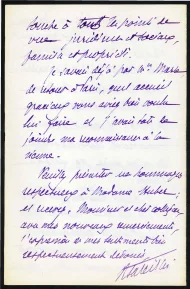 touche à tous les points de
vue juridique et sociaux,
famille et propriété.
Je savais déjà par la
de retour à Paris, quel accueil
gracieux vous aviez bien voulu
lui faire et j'avais hâte de
joindre ma reconnaissance à la
sienne.
Veuillez présenter nos hommages
respectueux à Madame Huber,
et agréez, Monsieur et cher collègue,
avec mes nouveaux remerciements,
l'expression de mes sentiments très
respectueusement dévoués